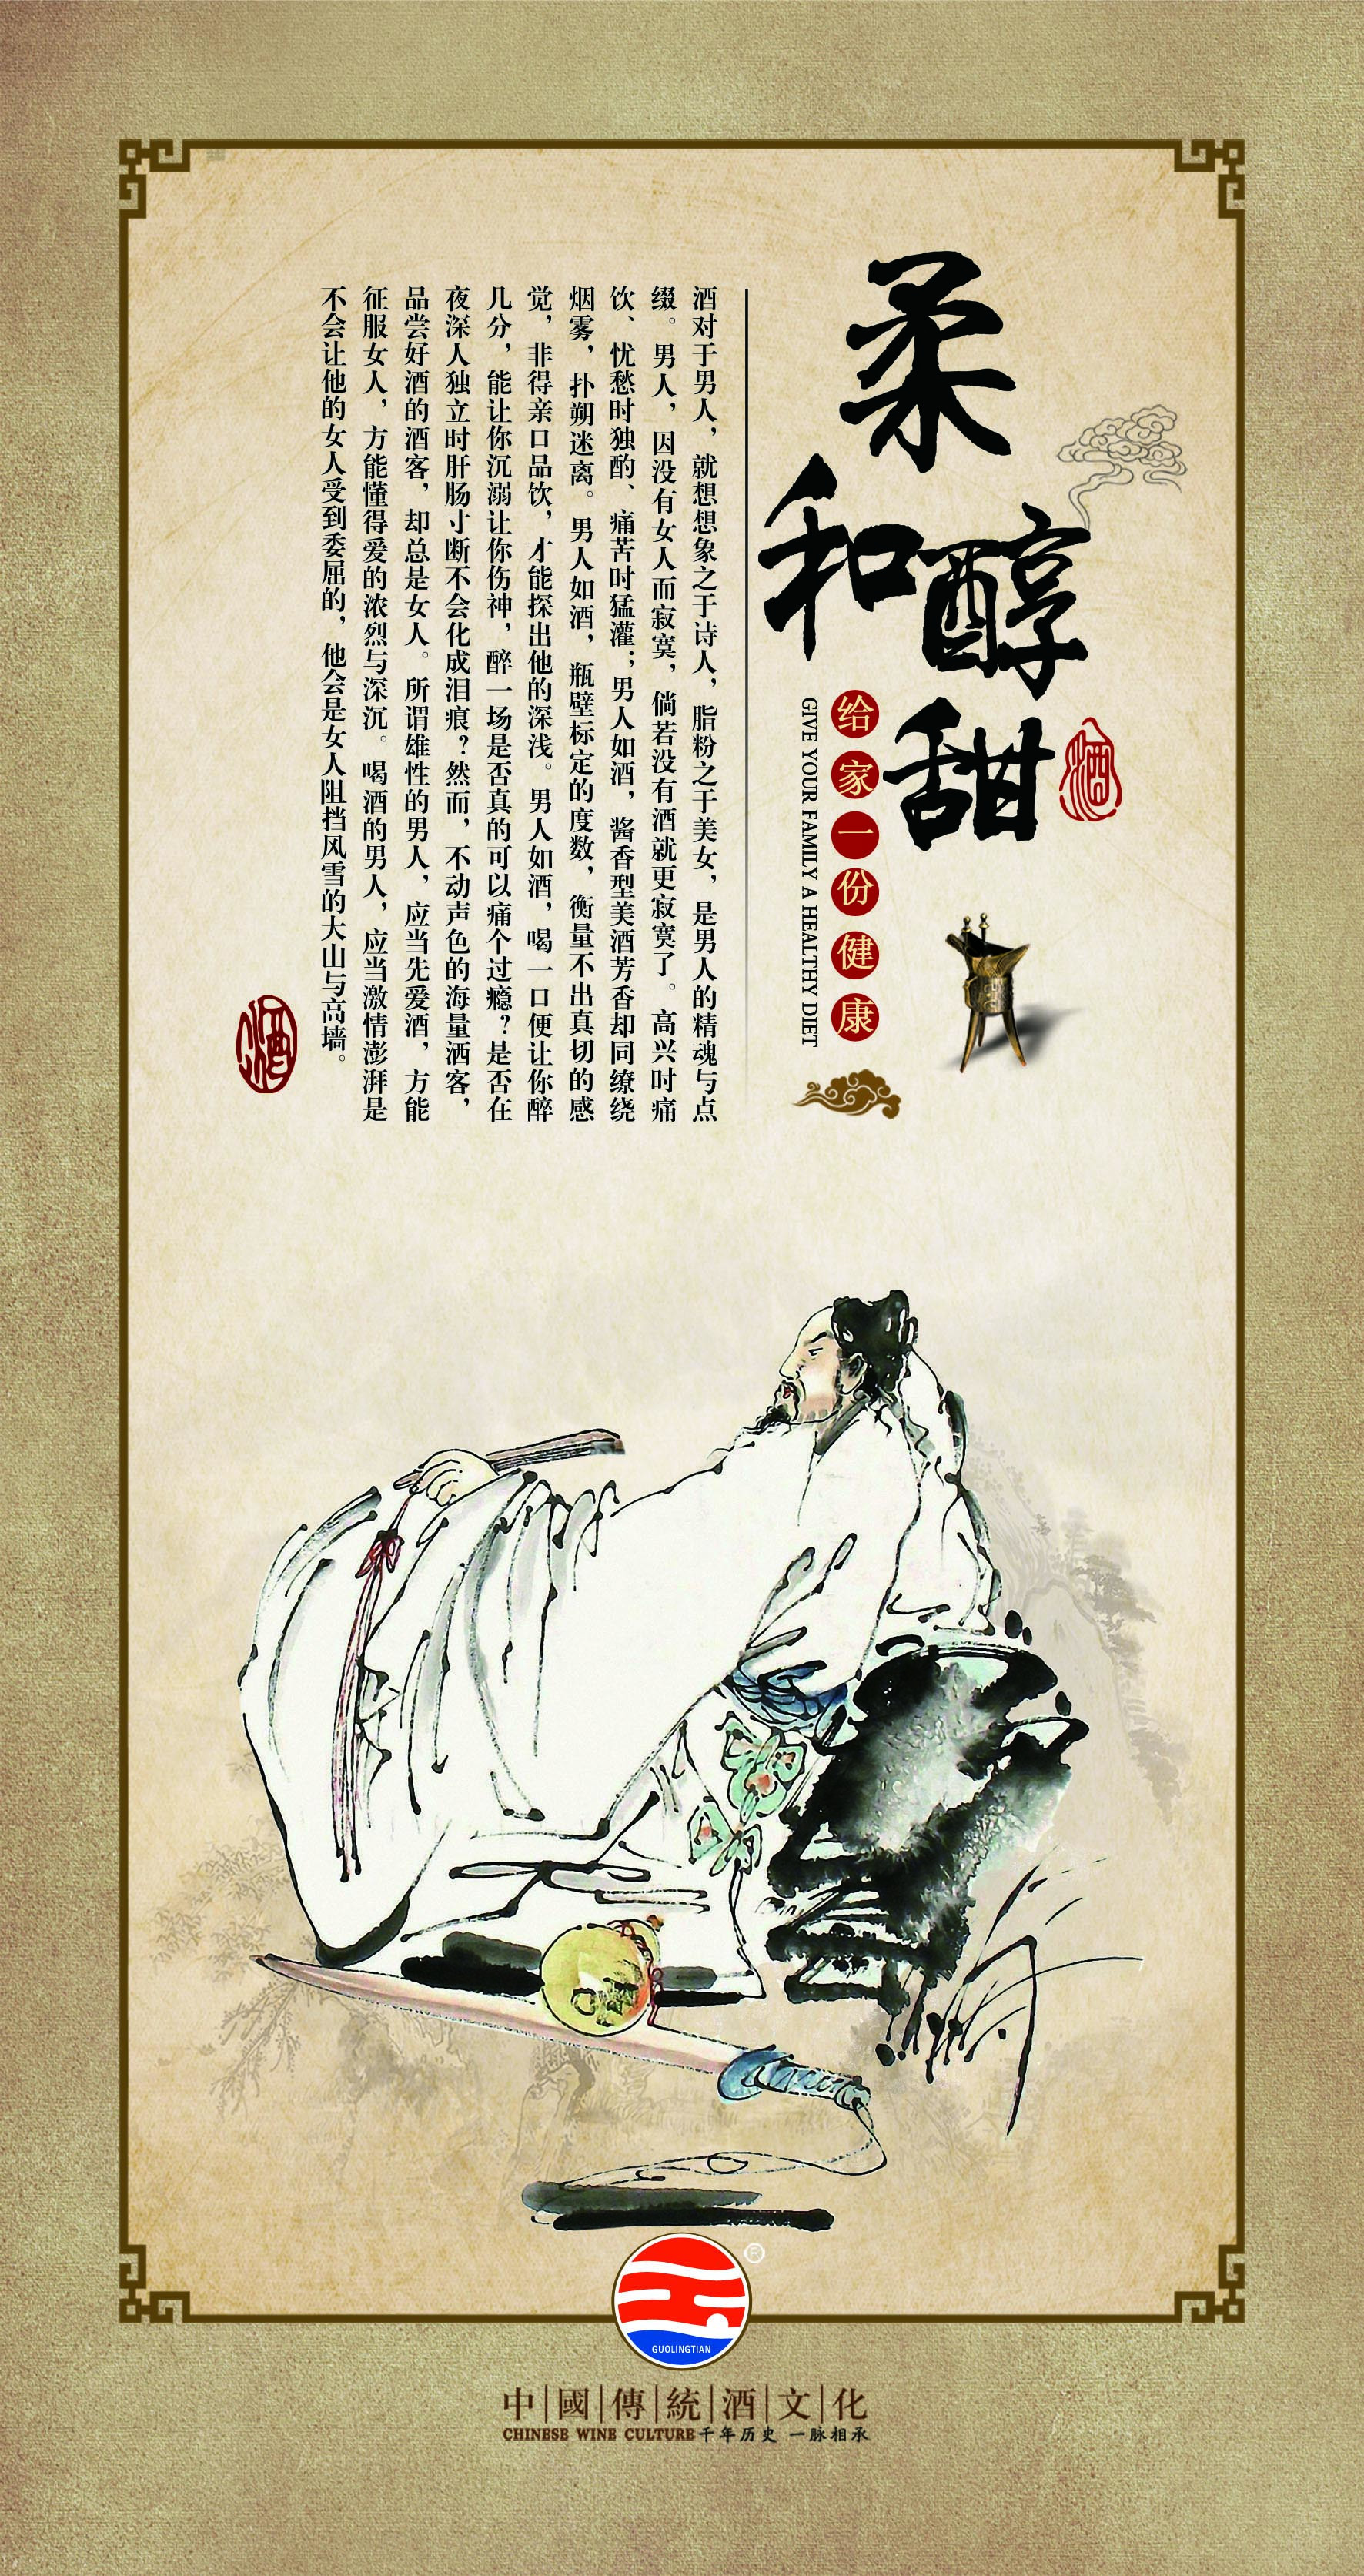 柔和
醇甜
酒
给家一份健康
GIVE YOUR FAMILY A HEALTHY DIET
酒对于男人，就想想象之于诗人，脂粉之于美女，是男人的精魂与点
缀。男人，因没有女人而寂寞，倘若没有酒就更寂寞了。高兴时痛
饮、忧愁时独酌、痛苦时猛灌；男人如酒，酱香型美酒芳香却同缭绕
烟雾，扑朔迷离。男人如酒，瓶壁标定的度数，衡量不出真切的感
觉，非得亲口品饮，才能探出他的深浅。男人如酒，喝一口便让你醉
几分，能让你沉溺让你伤神，醉一场是否真的可以痛个过瘾？是否在
夜深人独立时肝肠寸断不会化成泪痕？然而，不动声色的海量酒客，
品尝好酒的酒客，却总是女人。所谓雄性的男人，应当先爱酒，方能
征服女人，方能懂得爱的浓烈与深沉。喝酒的男人，应当激情澎湃是
不会让他的女人受到委屈的，他会是女人阻挡风雪的大山与高墙。
酒
R
GUOLINGTIAN
中國傳統酒文化
CHINESE WINE CULTURE 千年历史 一脉相承